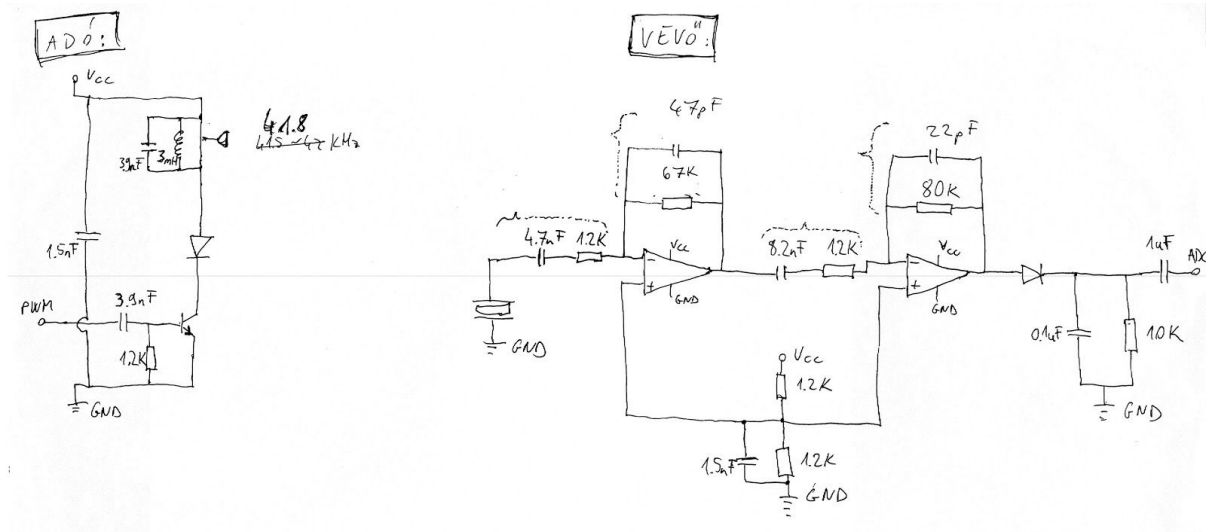 ADÓ:
Vcc
3.9nF
3mH
41.8
41.5~42 KHz
1.5nF
PWM
3.9nF
1.2K
GND
VEVŐ:
47pF
67K
4.7nF
1.2K
Vcc
GND
GND
22pF
80K
8.2nF
1.2K
Vcc
GND
1uF
ADC
0.1uF
10K
GND
Vcc
1.2K
1.5nF
1.2K
GND